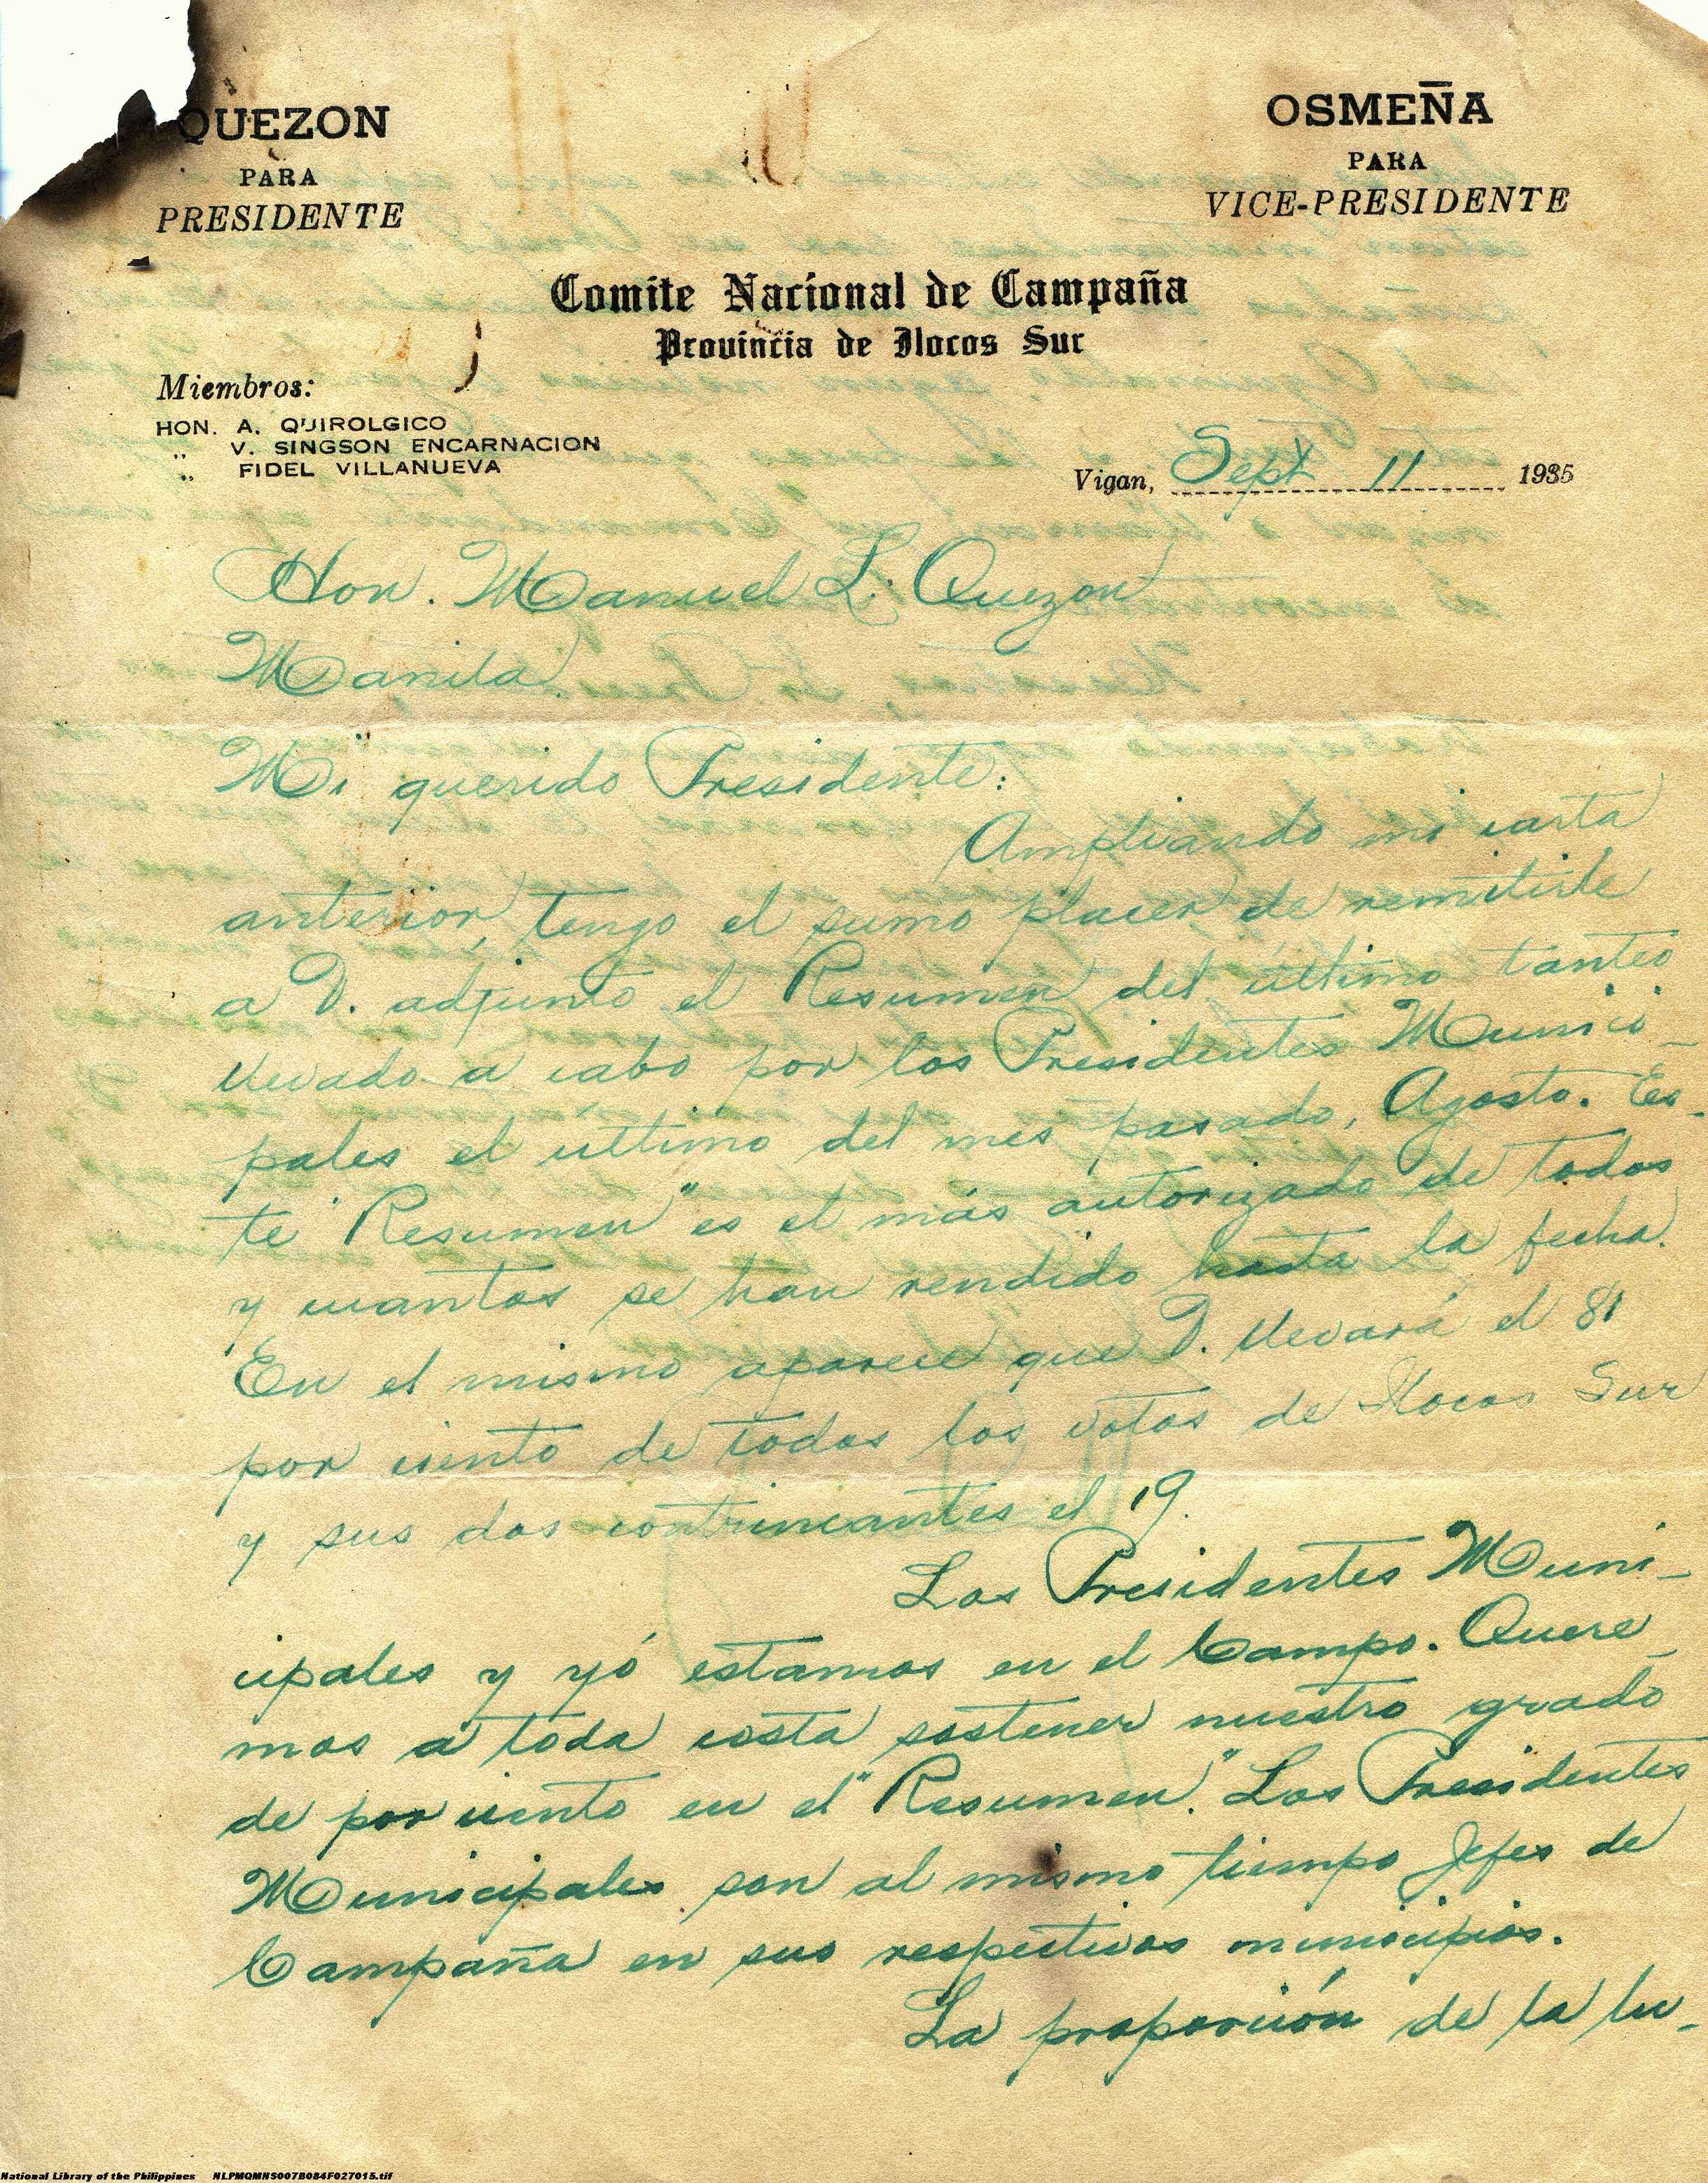 QUEZON
PARA
PRESIDENTE
OSMEÑA
PARA
VICE-PRESIDENTE
Comite Nacional de Campaña
Provincia de Ilocos Sur
Miembros:
HON. A. QUIROLGICO
,, V. SINGSON ENCARNACION
,, FIDEL VILLANUEVA
Vigan, Sept 11 1935
Hon. Manuel L. Quezon
Manila.
Mi querido Presidente:
Ampliando mi carta
anterior, tengo el sumo placer de remitirle
a V. adjunto el Resumen del último tanteo
llevado a cabo por los Presidentes Munici-
pales el último del mes pasado, Agosto. Es-
te "Resumen" es el más autorizado de todos
y cuantos se han rendido hasta la fecha.
En el mismo aparece que V. llevará el 81
por ciento de todos los votos de Ilocos Sur
y sus dos contrincantes el 19.
Los Presidentes Muni-
cipales y yó estamos en el Campo. Quere-
mos a toda costa sostener nuestro grado
de por ciento en el "Resumen". Los Presidentes
Municipales son al mismo tiempo Jefes de
Campaña en sus respectivos municipios.
La proporción de la lu-
National Library of the Philippines NLPMQMNS007B084F027015.tif